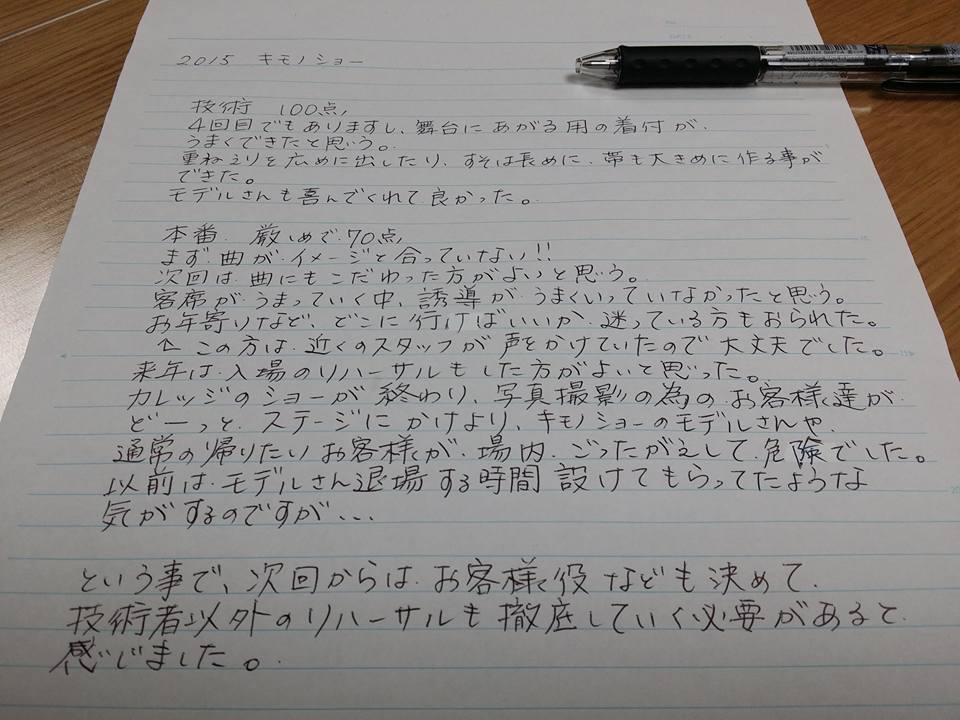 2015 キモノショー
技術 100点、
4回目でもありますし、舞台にあがる用の着付が、
うまくできたと思う。
重ねえりを広めに出したり、すそは長めに、帯も大きめに作る事が
できた。
モデルさんも喜んでくれて良かった。
本番、厳しめで70点、
まず、曲がイメージと合っていない!!
次回は曲にもこだわった方がよいと思う。
客席がうまっていく中、誘導がうまくいっていなかったと思う。
お年寄りなど、どこに行けばいいか、迷っている方もおられた。
↑この方は、近くのスタッフが声をかけていたので大丈夫でした。
来年は、入場のリハーサルもした方がよいと思った。
カレッジのショーが終わり、写真撮影の為のお客様達が
どーっとステージにかけより、キモノショーのモデルさんや、
通常の帰りたいお客様が、場内、ごったがえして危険でした。
以前は、モデルさん退場する時間設けてもらってたような
気がするのですが、、、
という事で、次回からは、お客様役なども決めて、
技術者以外のリハーサルも徹底していく必要があると、
感じました。